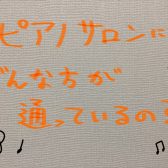 ピアノサロンに
どんな方が
通っているの?